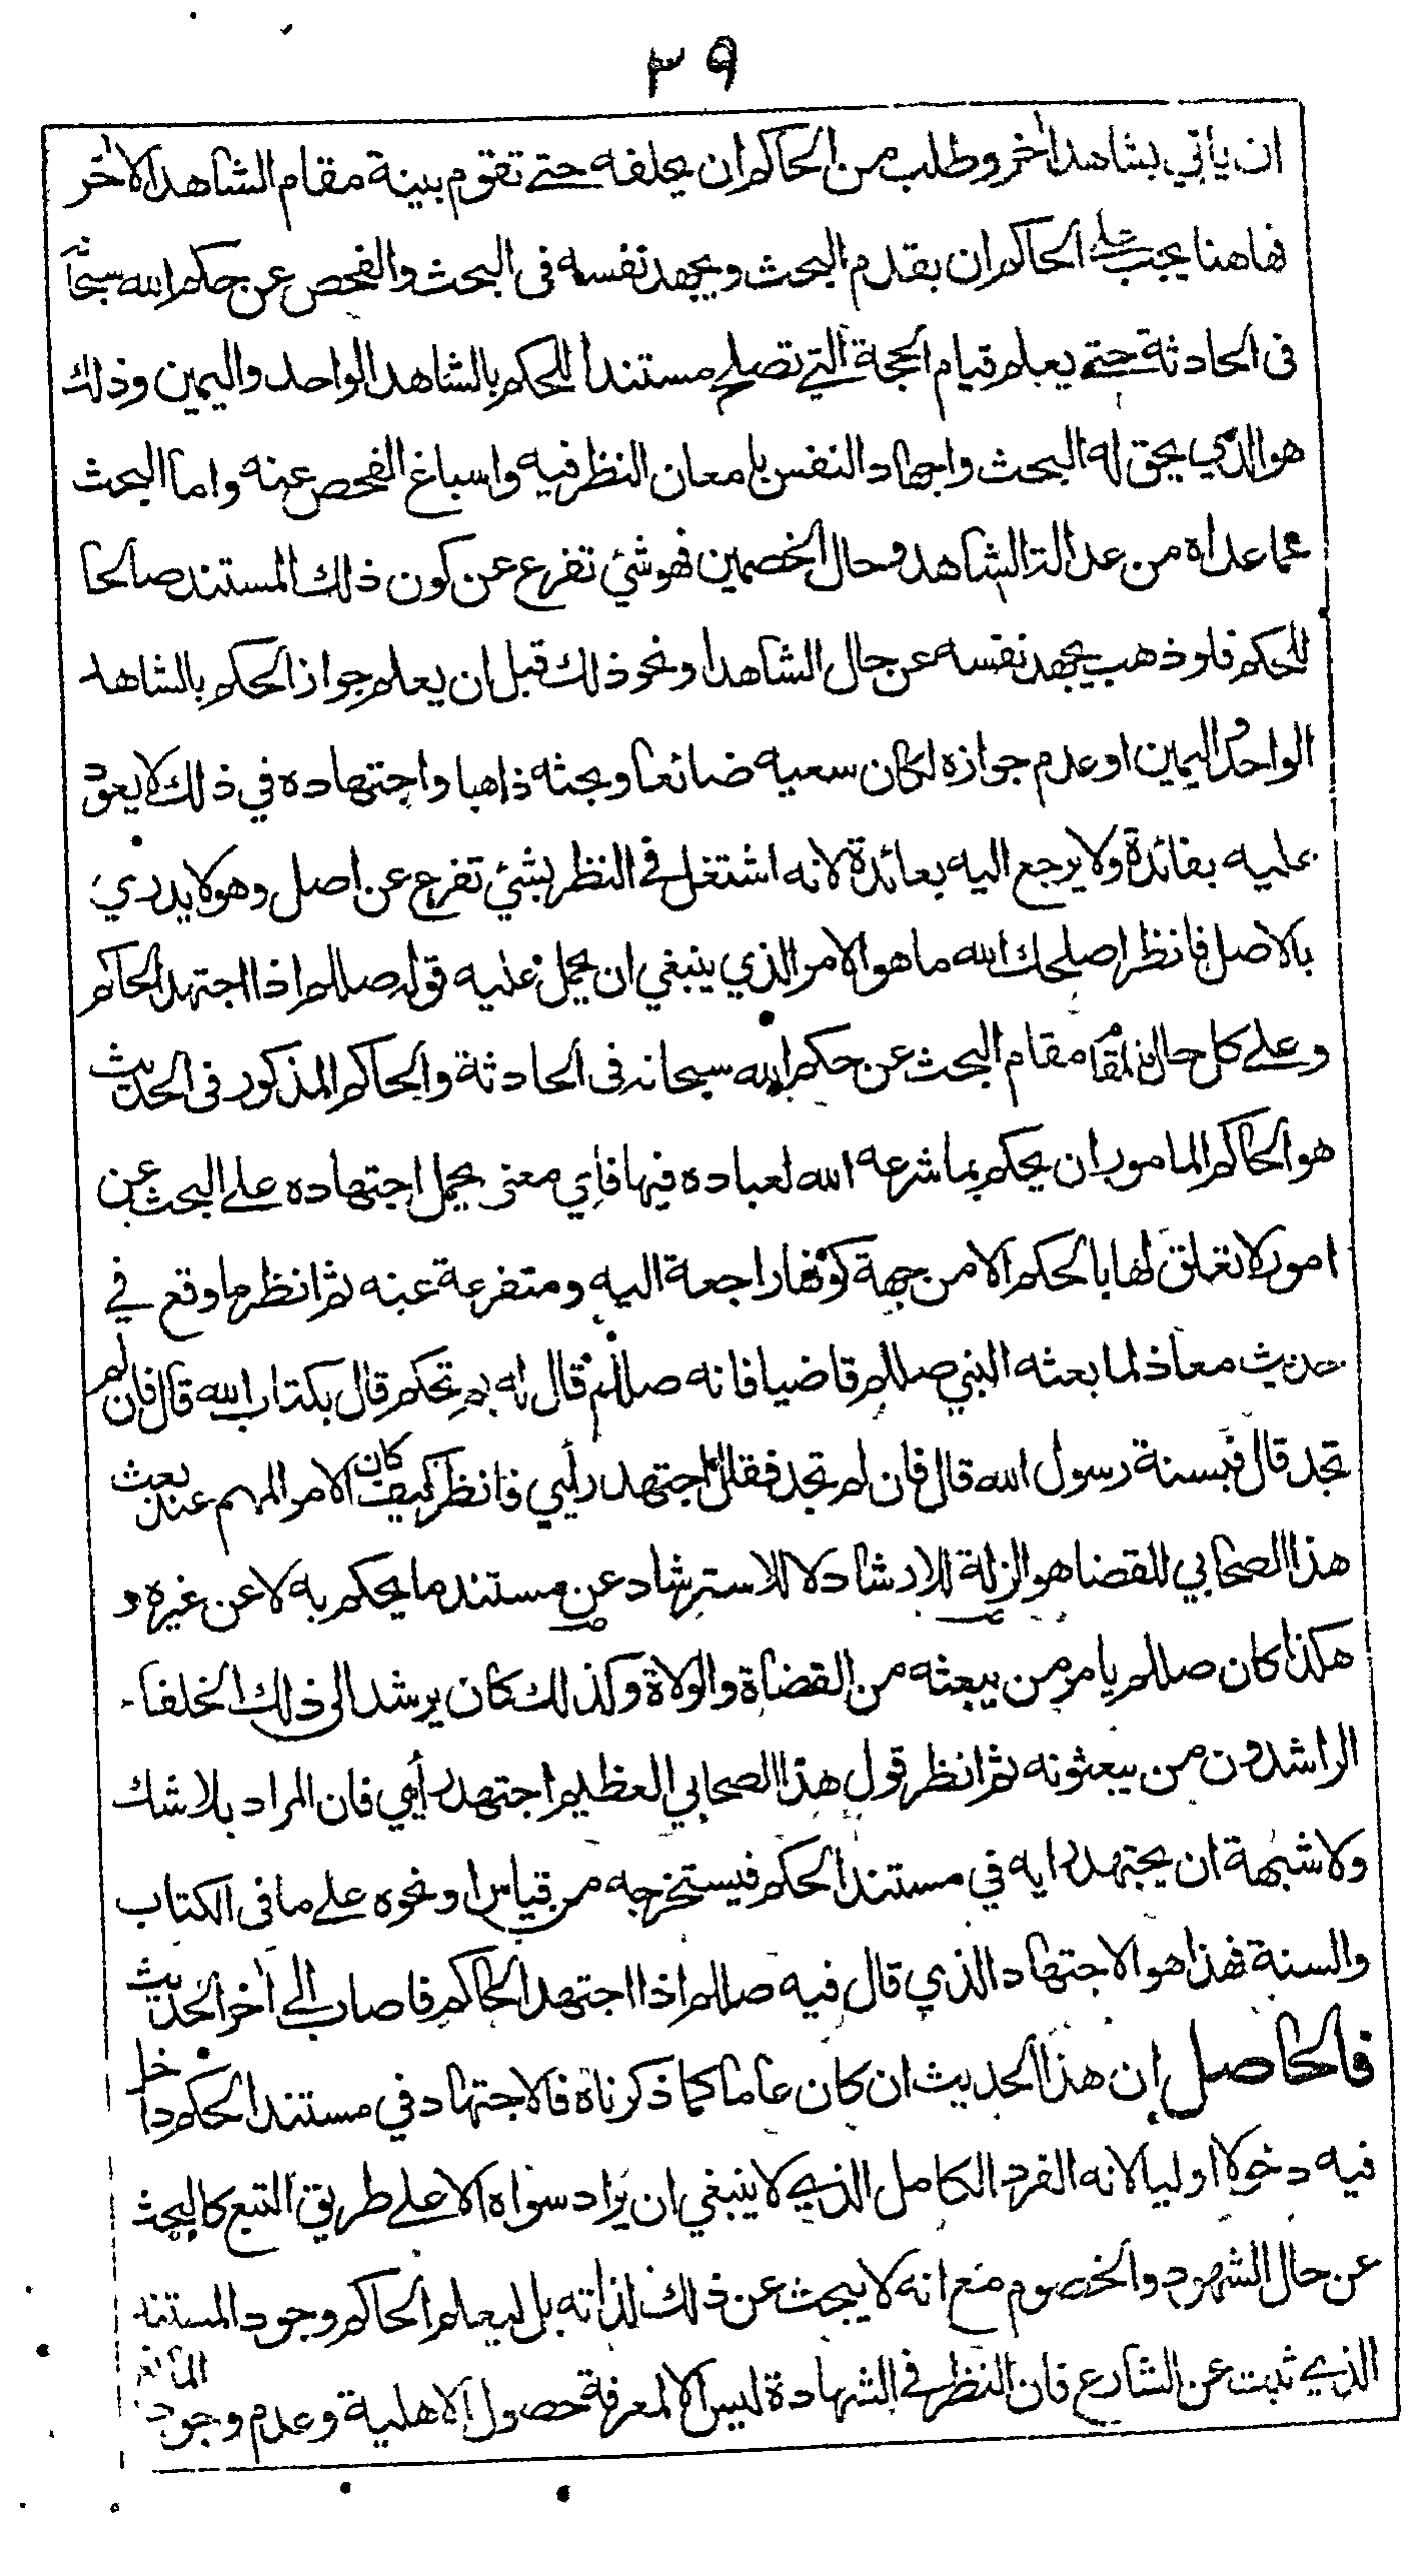 ٣٩
ان يأتي بشاهد اٰخر وطلب من الحاكم ان يحلفه حتے تقوم بينة مقام الشاهد الاٰخر
فهاهنا يجب علے الحاكم ان يقدم البحث ويجهد نفسه فى البحث والفحص عن حكم الله سبحانه
فى الحادثة حتے يعلم قيام الحجة التے تصلح مستندا للحكم بالشاهد الواحد واليمين وذلك
هو الذي يحق له البحث واجهاد النفس بامعان النظر فيه واسباغ الفحص عنه واما البحث
عما عداه من عدالة الشاهد وحال الخصمين فهو شئ تفرع عن كون ذلك المستند صالحا
للحكم فلو ذهب يجهد نفسه عن حال الشاهد او نحو ذلك قبل ان يعلم جواز الحكم بالشاهد
الواحد واليمين او عدم جوازه لكان سعيه ضائعا وبحثه ذاهبا واجتهاده في ذلك لا يعود
عليه بفائدة ولا يرجع اليه بعائدة لانه اشتغل فے النظر بشئ تفرع عن اصل وهو لا يدري
بالاصل فانظر اصلحك الله ما هو الامر الذي ينبغي ان يحمل عليه قوله صللم اذا اجتهد الحاكم
وعلے كل حال فالمقام مقام البحث عن حكم الله سبحانه فى الحادثة والحاكم المذكور فى الحديث
هو الحاكم المامور ان يحكم بما شرعه الله لعباده فيها فاي معنى يحمل اجتهاده علے البحث عن
امور لا تعلق لها بالحكم الا من جهة كونها راجعة اليه ومتفرعة عنه ثم انظر ما وقع في
حديث معاذ لما بعثه النبي صللم قاضيا فانه صللم قال له بم تحكم قال بكتاب الله قال فان لم
تجد قال فبسنة رسول الله قال فان لم تجد فقال اجتهد رأيي فانظر كيف كان الامر المهم عند بعث
هذا الصحابي للقضا هو الزلة للارشاد لا للاسترشاد عن مستند ما يحكم به لا عن غيره و
هكذا كان صللم يامر من يبعثه من القضاة والولاة وكذلك كان يرشد الى ذلك الخلفاء
الراشدون من يبعثونه ثم انظر قول هذا الصحابي العظيم اجتهد رأيي فان المراد بلا شك
ولا شبهة ان يجتهد رايه في مستند الحكم فيستخرجه من قياس او نحوه علے ما فى الكتاب
والسنة فهذا هو الاجتهاد الذي قال فيه صللم اذا اجتهد الحاكم فاصاب الے اٰخر الحديث
فالحاصل ان هذا الحديث ان كان عاما كما ذكرناه فالاجتهاد في مستند الحكم داخل
فيه دخولا اوليا لانه الفرد الكامل الذي لا ينبغي ان يراد سواه الا علے طريق التبع كالبحث
عن حال الشهود والخصوم مع انه لا يبحث عن ذلك لذاته بل ليعلم الحاكم وجود المستند
الذي ثبت عن الشارع فان النظر فے الشهادة ليس الا لمعرفة حصول الاهلية وعدم وجود المانع